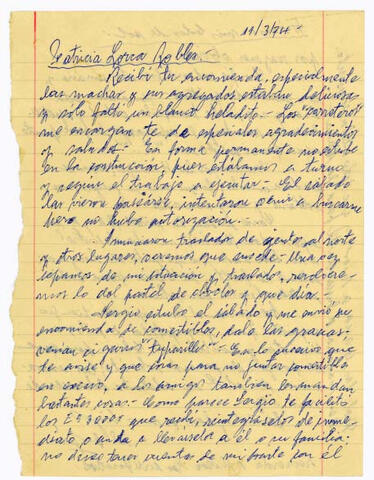 19/3/74-
Patricia Lorca Robles.
Recibí tu encomienda, especialmente
las machas y sus agregados estaban deliciosas
y sólo faltó un blanco helado. Los "carreteros"
me encargan te de especiales agradecimientos
y saludos.- En forma permanente no estube
en la construcción, pues estábamos a turno
y según el trabajo a ejecutar.- El sábado
las vieron pasar, intentaron venir a buscarme
pero no hubo autorización.
Anunciaron traslados de gente al norte
y otros lugares, veremos que sucede. Una vez
sepamos de mi situación y traslados, resolvere-
mos lo del pastel de choclos y que día.
Sergio estubo el sábado y me envió
encomienda de comestibles, dale las gracias
venían
En lo sucesivo que
te avise y que cosas para no juntar comestible
en exceso, a los amigos tambien les mandan
bastantes cosas.- Como parece Sergio te facilitó
los E° 3000 que recibí, reintégraselos de inme-
diato o anda a llevárselos a él o su familia;
no dejes tener cuentas de mi parte con él